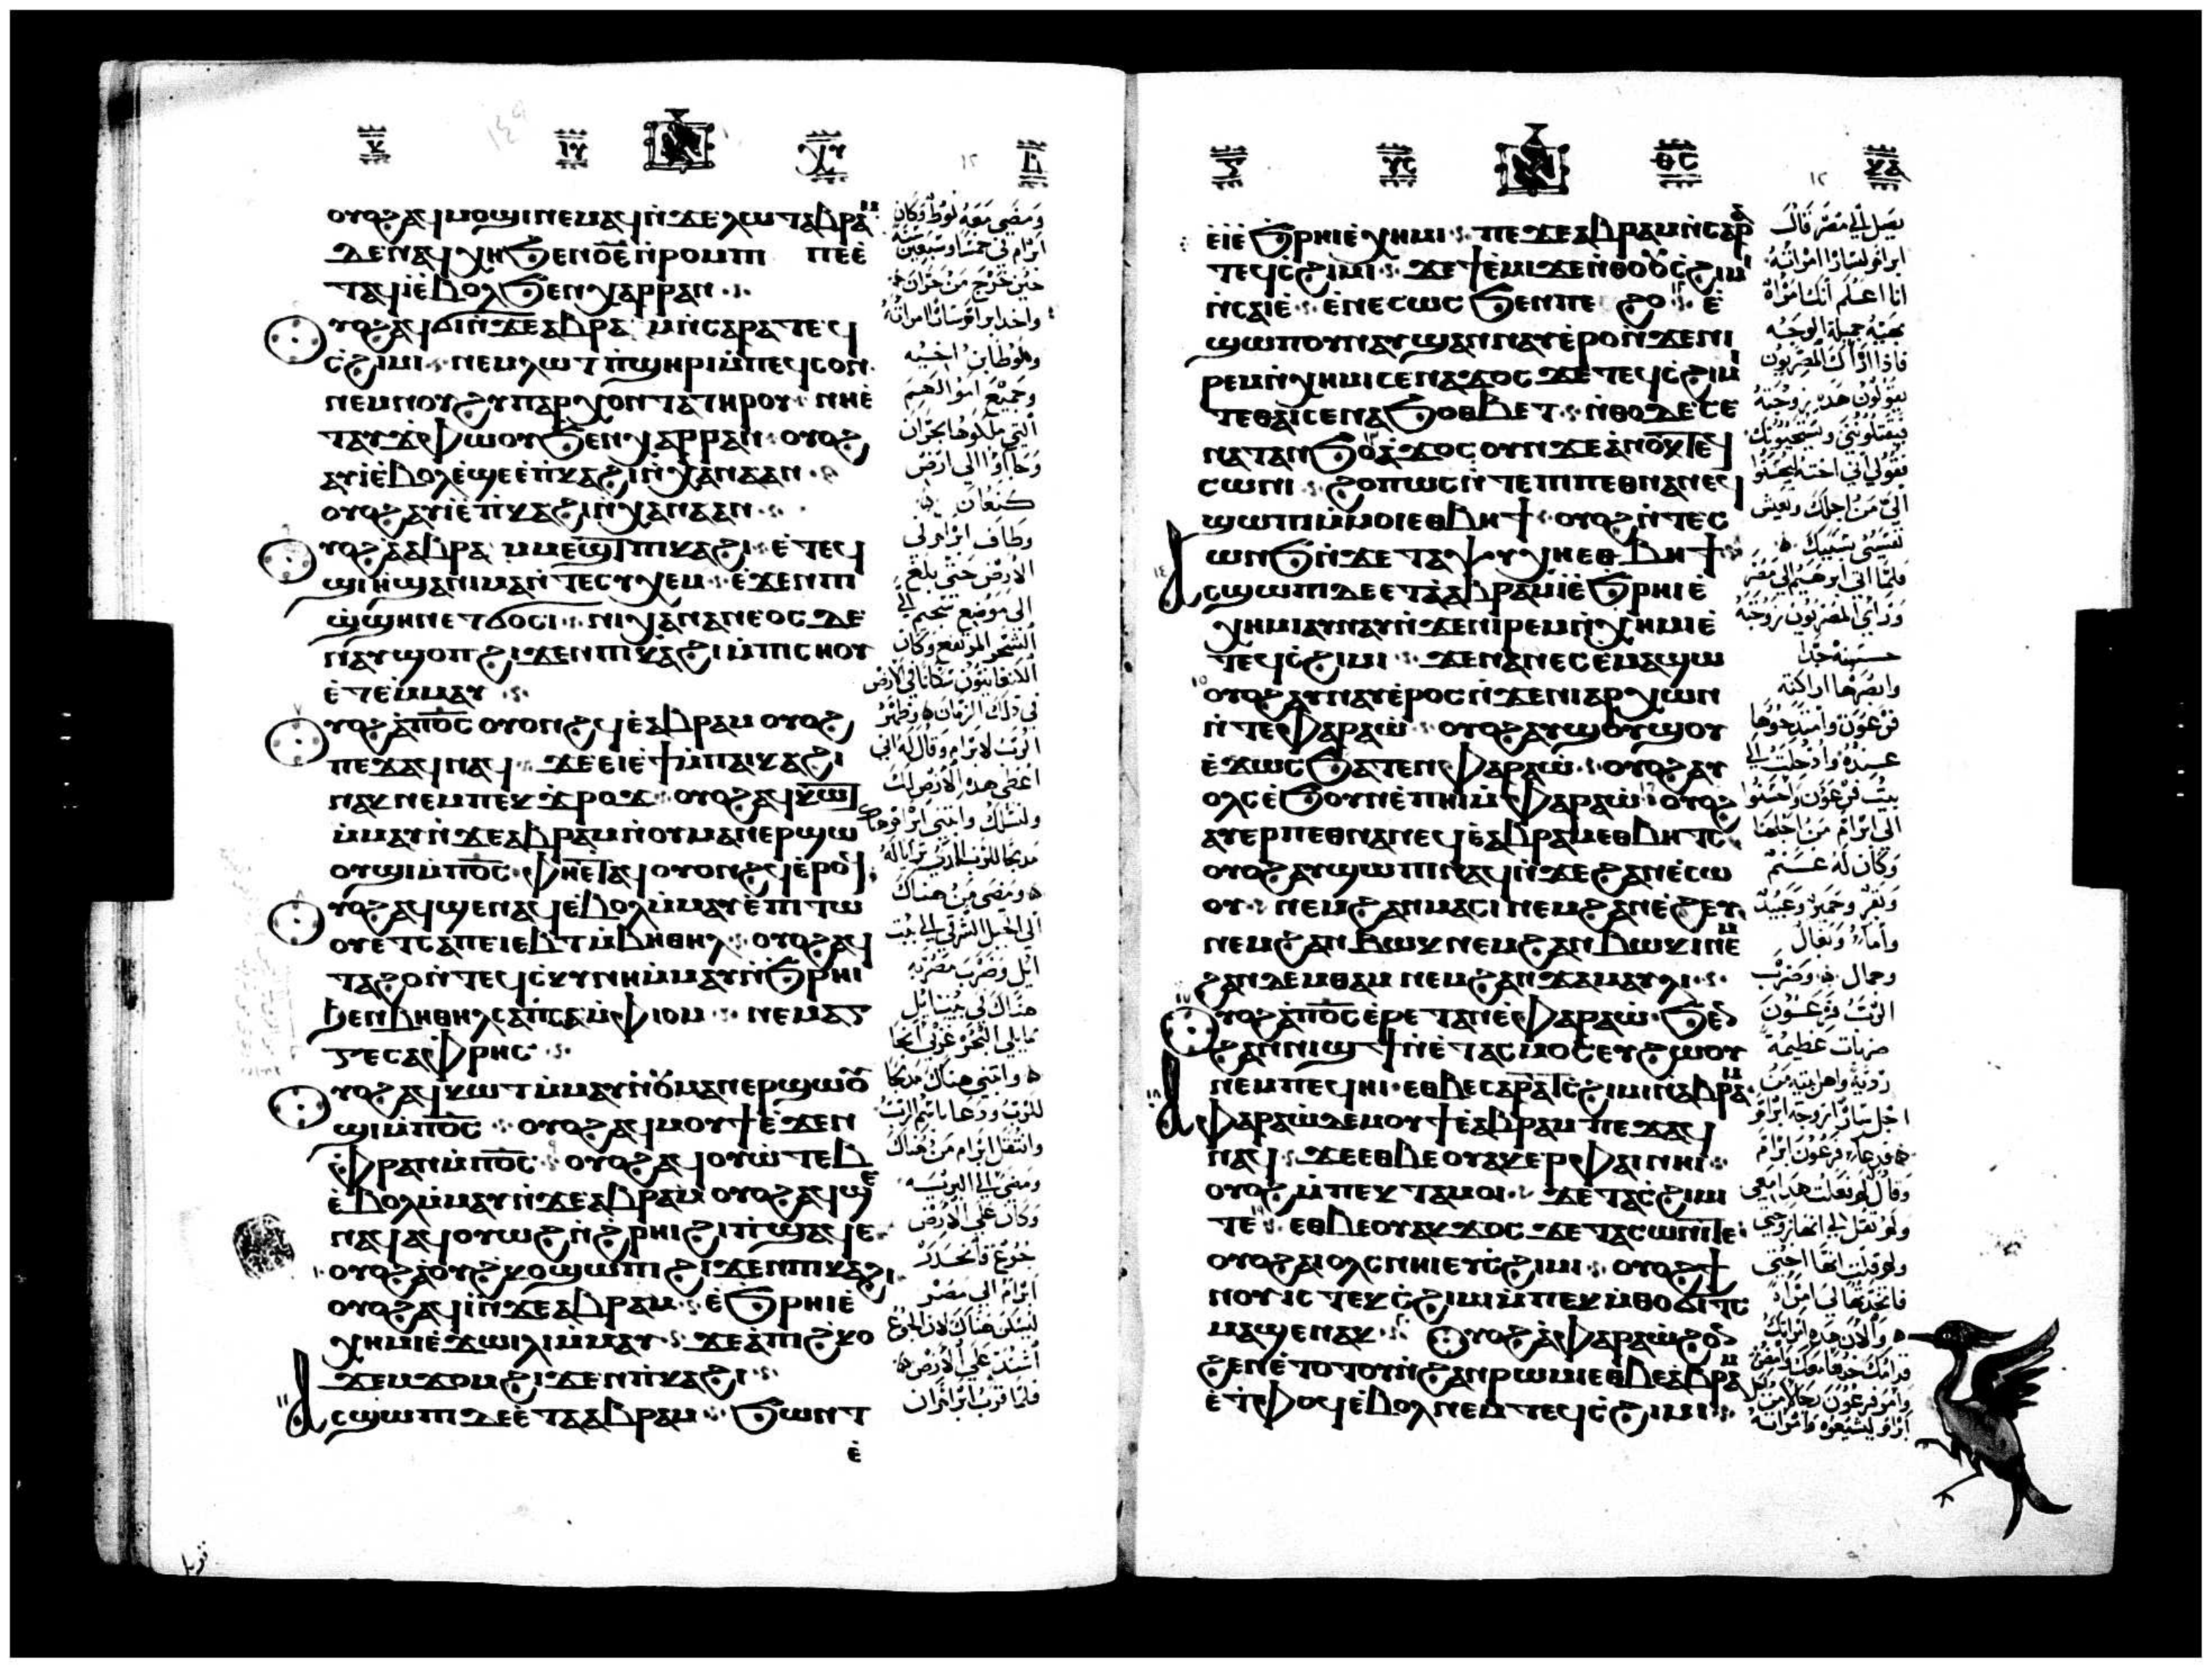 ⲟⲩⲟϩ ⲁϥⲙⲟϣⲓ ⲛⲉⲙⲁϥ ⲛ̀ϫⲉ ⲗⲱⲧ ⲁⲃⲣⲁⲙ
ⲇⲉ ⲛⲁϥⲭⲏ ϧⲉⲛ ⲟ̅ⲉ̅ ⲛ̀ⲣⲟⲙⲡⲓ ⲡⲉ ⲉ̀
ⲧⲁϥⲓ̀ ⲉ̀ⲃⲟⲗ ϧⲉⲛ ⲭⲁⲣⲣⲁⲛ
ⲟⲩⲟϩ ⲁϥϭⲓ ⲛ̀ϫⲉ ⲁⲃⲣⲁⲙ ⲛ̀ⲥⲁⲣⲁ ⲧⲉϥ
ⲥϩⲓⲙⲓ ⲛⲉⲙ ⲗⲱⲧ ⲡ̀ϣⲏⲣⲓ ⲙ̀ⲡⲉϥⲥⲟⲛ
ⲛⲉⲙ ⲛⲟⲩϩⲩⲡⲁⲣⲭⲟⲛⲧⲁ ⲧⲏⲣⲟⲩ ⲛⲏ ⲉ̀
ⲧⲁⲩϫ̀ⲫⲱⲟⲩ ϧⲉⲛ ⲭⲁⲣⲣⲁⲛ ⲟⲩⲟϩ
ⲁⲩⲓ̀ ⲉ̀ⲃⲟⲗ ⲉ̀ϣⲉ ⲉ̀ⲡⲕⲁϩⲓ ⲛ̀ⲭⲁⲛⲁⲁⲛ
ⲟⲩⲟϩ ⲁⲩⲓ̀ ⲉ̀ⲡⲕⲁϩⲓ ⲛ̀ⲭⲁⲛⲁⲁⲛ
ⲟⲩⲟϩ ⲁ̀ⲁⲃⲣⲁⲙ ⲙⲉϣⲧ ⲡⲓⲕⲁϩⲓ ⲉ̀ⲧⲉϥ
ϣⲓⲏ ϣⲁ ⲡⲓⲙⲁ ⲛ̀ⲧⲉ ⲥⲩⲭⲉⲙ ⲉ̀ϫⲉⲛ ⲡⲓ
ϣ̀ϣⲏⲛ ⲉⲧϭⲟⲥⲓ ⲛⲓⲭⲁⲛⲁⲛⲉⲟⲥ ⲇⲉ
ⲛⲁⲩϣⲟⲡ ϩⲓϫⲉⲛ ⲡⲓⲕⲁϩⲓ ⲙ̀ⲡⲓⲥⲏⲟⲩ
ⲉ̀ⲧⲉⲙ̀ⲙⲁⲩ
ⲟⲩⲟϩ ⲁ̀ⲡ̅ⲟ̅ⲥ̅ ⲟⲩⲟⲛϩϥ ⲉ̀ⲁⲃⲣⲁⲙ ⲟⲩⲟϩ
ⲡⲉϫⲁϥ ⲛⲁϥ ϫⲉ ⲉⲓⲉ̀ϯ ⲙ̀ⲡⲁⲓⲕⲁϩⲓ
ⲛⲁⲕ ⲛⲉⲙ ⲡⲉⲕϫ̀ⲣⲟϫ ⲟⲩⲟϩ ⲁϥⲕⲱⲧ
ⲙ̀ⲙⲁⲩ ⲛ̀ϫⲉ ⲁⲃⲣⲁⲙ ⲛ̀ⲟⲩⲙⲁⲛⲉⲣϣⲱ
ⲟⲩϣⲓ ⲙ̀ⲡ̅ⲟ̅ⲥ̅ ⲫⲏⲉⲧⲁϥⲟⲩⲟⲛϩϥ ⲉ̀ⲣⲟϥ
ⲟⲩⲟϩ ⲁϥϣⲉⲛⲁϥ ⲉ̀ⲃⲟⲗ ⲙ̀ⲙⲁⲩ ⲉ̀ⲡⲓⲧⲱ
ⲟⲩ ⲉⲧⲥⲁⲡⲉⲓⲉⲃⲧ ⲙ̀ⲃⲏⲑⲏⲗ ⲟⲩⲟϩ ⲁϥ
ⲧⲁϩⲟ ⲛ̀ⲧⲉϥⲥⲕⲩⲛⲏ ⲙ̀ⲙⲁⲩ ⲛ̀ϧⲣⲏⲓ
ϧⲉⲛ ⲃⲏⲑⲏⲗ ⲥⲁⲡⲥⲁ ⲙ̀ⲫⲓⲟⲙ ⲛⲉⲙ ⲁⲅ
ⲅⲉ ⲥⲁⲫⲣⲏⲥ
ⲟⲩⲟϩ ⲁϥⲕⲱⲧ ⲙ̀ⲙⲁⲩ ⲛ̀ⲟⲩⲙⲁⲛⲉⲣϣⲱⲟⲩ
ϣⲓ ⲙ̀ⲡ̅ⲟ̅ⲥ̅ ⲟⲩⲟϩ ⲁϥⲙⲟⲩϯ ⲉ̀ϫⲉⲛ
ⲫ̀ⲣⲁⲛ ⲙ̀ⲡ̅ⲟ̅ⲥ̅ ⲟⲩⲟϩ ⲁϥⲟⲩⲱ̀ⲧⲉⲃ
ⲉ̀ⲃⲟⲗ ⲙ̀ⲙⲁⲩ ⲛ̀ϫⲉ ⲁⲃⲣⲁⲙ ⲟⲩⲟϩ ⲁϥϣⲉ
ⲛⲁϥ ⲁϥⲟⲩⲱϩ ⲛ̀ϩⲣⲏⲓ ϩⲓ ⲡ̀ϣⲁϥⲉ
ⲟⲩⲟϩ ⲁ̀ⲟⲩϩⲕⲟ ϣⲱⲡⲓ ϩⲓϫⲉⲛ ⲡⲓⲕⲁϩⲓ
ⲟⲩⲟϩ ⲁϥⲓ̀ ⲛ̀ϫⲉ ⲁⲃⲣⲁⲙ ⲉ̀ϧⲣⲏⲓ ⲉ̀
ⲭⲏⲙⲓ ⲉ̀ϫⲱⲓⲗⲓ ⲙ̀ⲙⲁⲩ ϫⲉ ⲁ̀ⲡⲓϩⲕⲟ
ϫⲉⲙϫⲟⲙ ϩⲓϫⲉⲛ ⲡⲓⲕⲁϩⲓ
ⲁⲥϣⲱⲡⲓ ⲇⲉ ⲉ̀ⲧⲁ ⲁⲃⲣⲁⲙ ϧⲱⲛⲧ
ⲉ̀
ومضى معه لوط وكان
ابرام في خمسا وسبعين سنة
حين خرج من حران
واخد ابرام سارا امراته
ولوطا بن اخيه
وجميع اموالهم
التي ملكوها بحران
وجاوا الي ارض
كنعان
وطاف ابرام في
الارض حتى بلغ
الى موضع شخيم الي
الشجر المرتفع وكان
الكنعانيون سكانا في الارض
في ذلك الزمان وظهر
الرب لابرام وقال له اني
اعطي هده الارض لك
ولنسلك وابتنى ابرام هناك
مدبحا للرب الذي ترايا له
ومضى من هناك
الى الجبل الشرقي الي بيت
ايل وضرب مضربه
هناك في بيت ايل
مما يلي البحر غربي
وابتنى هناك مدبحا
للرب ودعا باسم الرب
وانتقل ابرام من هناك
ومضى الي البرية
وكان علي الارض
جوع فانحدر
ابرام الى مصر
ليسكن هناك لان الجوع
اشتد علي الارض
فلما قرب ابرام ان
ⲉⲓ̀ ⲉ̀ϧⲣⲏⲓ ⲉ̀ⲭⲏⲙⲓ ⲡⲉϫⲉ ⲁⲃⲣⲁⲙ ⲛ̀ⲥⲁⲣⲁ
ⲧⲉϥⲥ̀ϩⲓⲙⲓ ϫⲉ ϯⲉ̀ⲙⲓ ϫⲉ ⲛ̀ⲑⲟ ⲟⲩⲥ̀ϩⲓⲙⲓ
ⲛ̀ⲥⲁⲓⲉ̀ ⲉ̀ⲛⲉⲥⲱⲥ ϧⲉⲛ ⲡⲉϩⲟ ⲉ̀
ϣⲱⲡ ⲟⲩⲛ ⲁⲩϣⲁⲛⲛⲁⲩ ⲉ̀ⲣⲟ ⲛ̀ϫⲉ ⲛⲓ
ⲣⲉⲙⲛ̀ⲭⲏⲙⲓ ⲥⲉⲛⲁϫⲟⲥ ϫⲉ ⲧⲉϥⲥ̀ϩⲓⲙⲓ
ⲧⲉ ⲑⲁⲓ ⲥⲉⲛⲁϧⲟⲑⲃⲉⲧ ⲛ̀ⲑⲟ ⲇⲉ ⲥⲉ
ⲛⲁⲧⲁⲛϧⲟ ⲁ̀ϫⲟⲥ ⲟⲩⲛ ϫⲉ ⲁ̀ⲛⲟⲕ ⲧⲉϥ
ⲥⲱⲛⲓ ϩⲟⲡⲱⲥ ⲛ̀ⲧⲉ ⲡⲓⲡⲉⲑⲛⲁⲛⲉϥ
ϣⲱⲡⲓ ⲙ̀ⲙⲟⲓ ⲉⲑⲃⲏϯ ⲟⲩⲟϩ ⲛ̀ⲧⲉⲥ
ⲱⲛϧ ⲛ̀ϫⲉ ⲧⲁⲯⲩⲭⲏ ⲉⲑⲃⲏϯ
ⲁⲥϣⲱⲡⲓ ⲇⲉ ⲉⲧⲁ ⲁ̀ⲃⲣⲁⲙ ⲓ̀ ⲉ̀ϧⲣⲏⲓ ⲉ̀
ⲭⲏⲙⲓ ⲁⲩⲛⲁⲩ ⲛ̀ϫⲉ ⲛⲓⲣⲉⲙⲛ̀ⲭⲏⲙⲓ ⲉ̀
ⲧⲉϥⲥ̀ϩⲓⲙⲓ ϫⲉ ⲛⲁⲛⲉⲥ ⲉⲙⲁϣⲱ
ⲟⲩⲟϩ ⲁⲩⲛⲁⲩ ⲉ̀ⲣⲟⲥ ⲛ̀ϫⲉ ⲛⲓⲁⲣⲭⲱⲛ
ⲛ̀ⲧⲉ ⲫⲁⲣⲁⲱ̀ ⲟⲩⲟϩ ⲁⲩϣⲟⲩϣⲟⲩ
ⲉ̀ϫⲱⲥ ϧⲁⲧⲉⲛ ⲫⲁⲣⲁⲱ̀ ⲟⲩⲟϩ ⲁⲩ
ⲟⲗⲥ ⲉ̀ϧⲟⲩⲛ ⲉ̀ⲡⲏⲓ ⲙ̀ⲫⲁⲣⲁⲱ̀ ⲟⲩⲟϩ
ⲁⲩⲉⲣⲡⲉⲑⲛⲁⲛⲉϥ ⲉ̀ⲁⲃⲣⲁⲙ ⲉⲑⲃⲏⲧⲥ
ⲟⲩⲟϩ ⲁⲩϣⲱⲡⲓ ⲛⲁϥ ⲛ̀ϫⲉ ϩⲁⲛⲉ̀ⲥⲱ
ⲟⲩ ⲛⲉⲙ ϩⲁⲛⲙⲁⲥⲓ ⲛⲉⲙ ϩⲁⲛⲉ̀ϩⲉⲩ
ⲛⲉⲙ ϩⲁⲛⲃⲱⲕ ⲛⲉⲙ ϩⲁⲛⲃⲱⲕⲓ ⲛⲉⲙ
ϩⲁⲛϫⲉⲙⲑⲁⲙ ⲛⲉⲙ ϩⲁⲛϫⲁⲙⲁⲩⲗⲓ
ⲟⲩⲟϩ ⲁ̀ⲡ̅ⲟ̅ⲥ̅ ⲉ̀ⲣⲉⲧⲁⲛ ⲉ̀ⲫⲁⲣⲁⲱ̀ ϧⲉⲛ
ϩⲁⲛⲛⲓϣϯ ⲛ̀ⲉ̀ⲧⲁⲥⲙⲟⲥ ⲉⲩϩⲱⲟⲩ
ⲛⲉⲙ ⲡⲉϥⲏⲓ ⲉⲑⲃⲉ ⲥⲁⲣⲁ ⲧⲥ̀ϩⲓⲙⲓ ⲛ̀ⲁⲃⲣⲁⲙ
ⲁⲫⲁⲣⲁⲱ̀ ⲇⲉ ⲙⲟⲩϯ ⲉ̀ⲁⲃⲣⲁⲙ ⲡⲉϫⲁϥ
ⲛⲁϥ ϫⲉ ⲉⲑⲃⲉⲟⲩ ⲁⲕⲉⲣ ⲫⲁⲓ ⲛⲏⲓ
ⲟⲩⲟϩ ⲙ̀ⲡⲉⲕⲧⲁⲙⲟⲓ ϫⲉ ⲧⲁⲥ̀ϩⲓⲙⲓ
ⲧⲉ ⲉⲑⲃⲉⲟⲩ ⲁⲕϫⲟⲥ ϫⲉ ⲧⲁⲥⲱⲛⲓ ⲧⲉ
ⲟⲩⲟϩ ⲁⲓⲟⲗⲥ ⲛⲏⲓ ⲉⲩⲥ̀ϩⲓⲙⲓ ⲟⲩⲟϩ ϯ
ⲛⲟⲩ ⲓⲥ ⲧⲉⲕⲥ̀ϩⲓⲙⲓ ⲙ̀ⲡⲉⲕⲙ̀ⲑⲟ ϭⲓⲧⲥ
ⲙⲁϣⲉⲛⲁⲕ ⲟⲩⲟϩ ⲁ̀ⲫⲁⲣⲁⲱ̀ ϩⲟⲛ
ϩⲉⲛ ⲉ̀ⲧⲟⲧⲟⲩ ⲛ̀ϩⲁⲛⲣⲱⲙⲓ ⲉⲑⲃⲉ ⲁⲃⲣⲁⲙ
ⲉ̀ⲧ̀ⲫⲟϥ ⲉ̀ⲃⲟⲗ ⲛⲉⲙ ⲧⲉϥⲥ̀ϩⲓⲙⲓ
يصل الي مصر قال
ابرام لسارا امراته
انا اعلم انك امراة
بهية جميلة الوجه
فاذا راك المصريون
يقولون هده زوجته
فيقتلونني ويستحيونك
فقولي اني اخته ليحسنوا
الي من اجلك وتعيش
نفسي بسببك
فلما اتى ابرهيم الي مصر
وراي المصريون زوجته
حسنه جدا
وابصرها اراكنة
فرعون وامتدحوها
عنده وادخلت الي
بيت فرعون واحسنوا
الى ابرام من اجلها
وكان له غنم
وبقر وحمير وعبيد
واماء وبغال
وجمال وضرب
الرب فرعون
ضربات عظيمة
ردية واهل بيته من
اجل سارا زوجة ابرام
فدعا فرعون ابرام
وقال لم فعلت هدا معي
ولم تقل لي انها زوجتي
ولم قلت انها اختي
فاتخدتها لي امراة
والان هده امراتك
قدامك خدها معك وامض
وامر فرعون رجالا من اجل
ابرام ليشيعوه وامراته